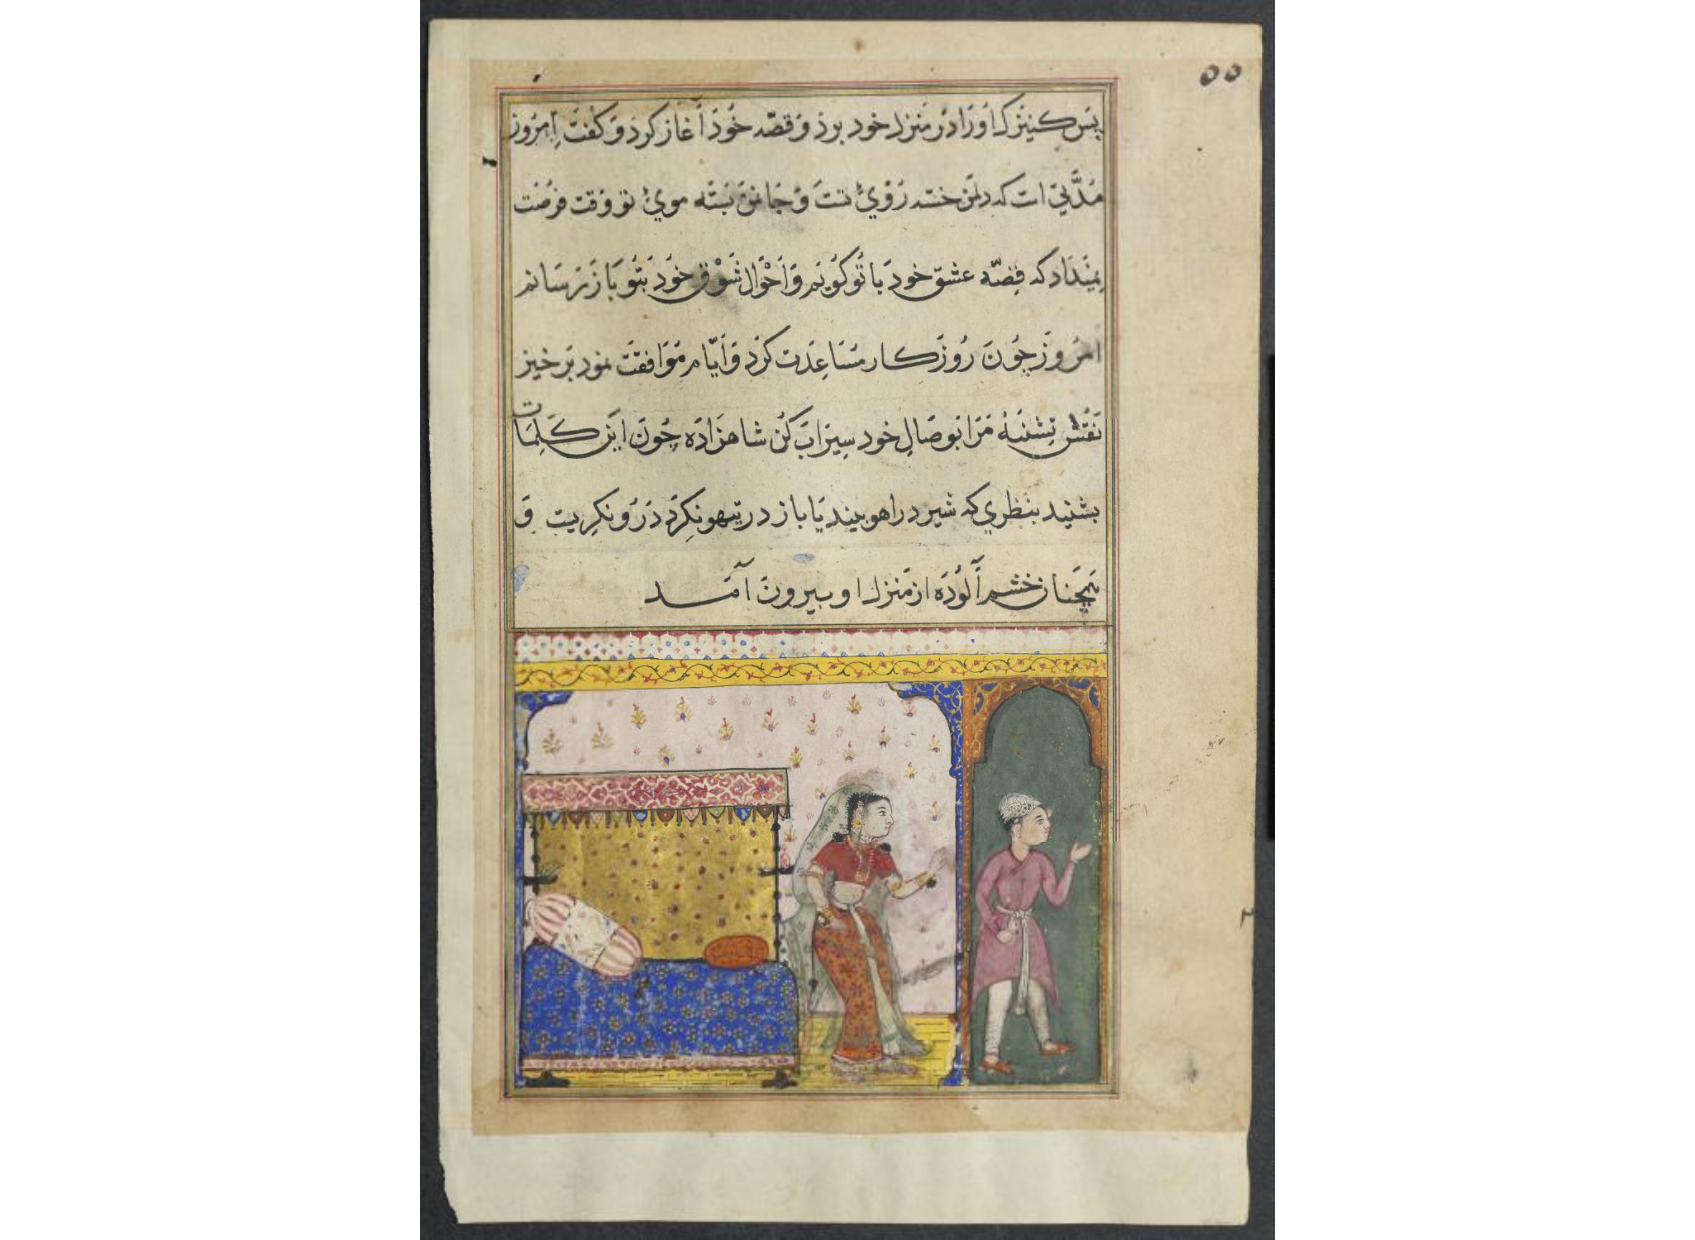 ۵۵
پس کنیزک او را در منزل خود برد و قصه خود آغاز کرد و گفت امروز
مدتی است که دلمن خسته روی تست و جانمن بسته موی تو و وقت فرصت
نمیداد که قصه عشق خود با تو گویم و احوال شوق خود بتو باز رسانم
امروز چون روزگار مساعدت کرد و ایام موافقت نمود برخیز
نفس تشنهٔ مرا بوصال خود سیراب کن شاهزاده چون این کلمات
بشنید بنظری که شیر در اهو بیند یا باز در تیهو نگرد درو نگریست و
همچنان خشم آلوده از منزل او بیرون آمد